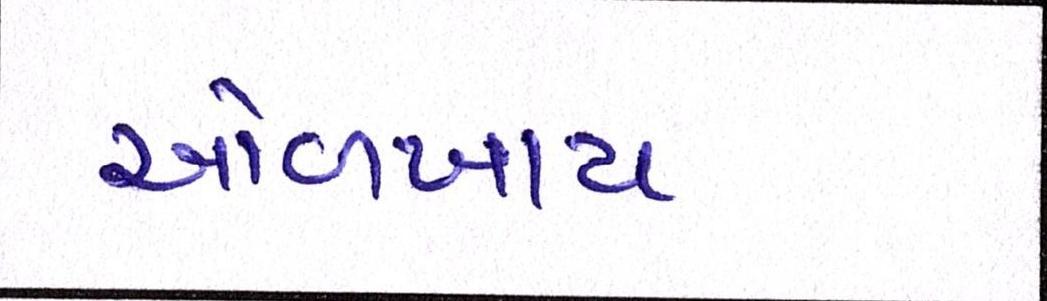 ઓળખાય